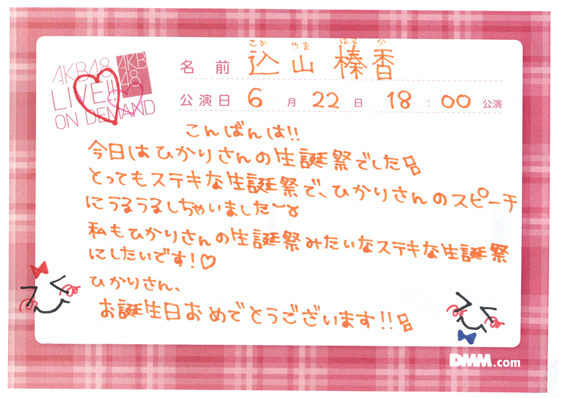 AKB48
LIVE!!
ON DEMAND
AKB
48
こみ やま はる か
名前 込山榛香
公演日 6月22日 18:00 公演
こんばんは!!
今日はひかりさんの生誕祭でした
とってもステキな生誕祭で、ひかりさんのスピーチ
にうるうるしちゃいました〜
私もひかりさんの生誕祭みたいなステキな生誕祭
にしたいです!♡
ひかりさん、
お誕生日おめでとうございます!!
DMM.com